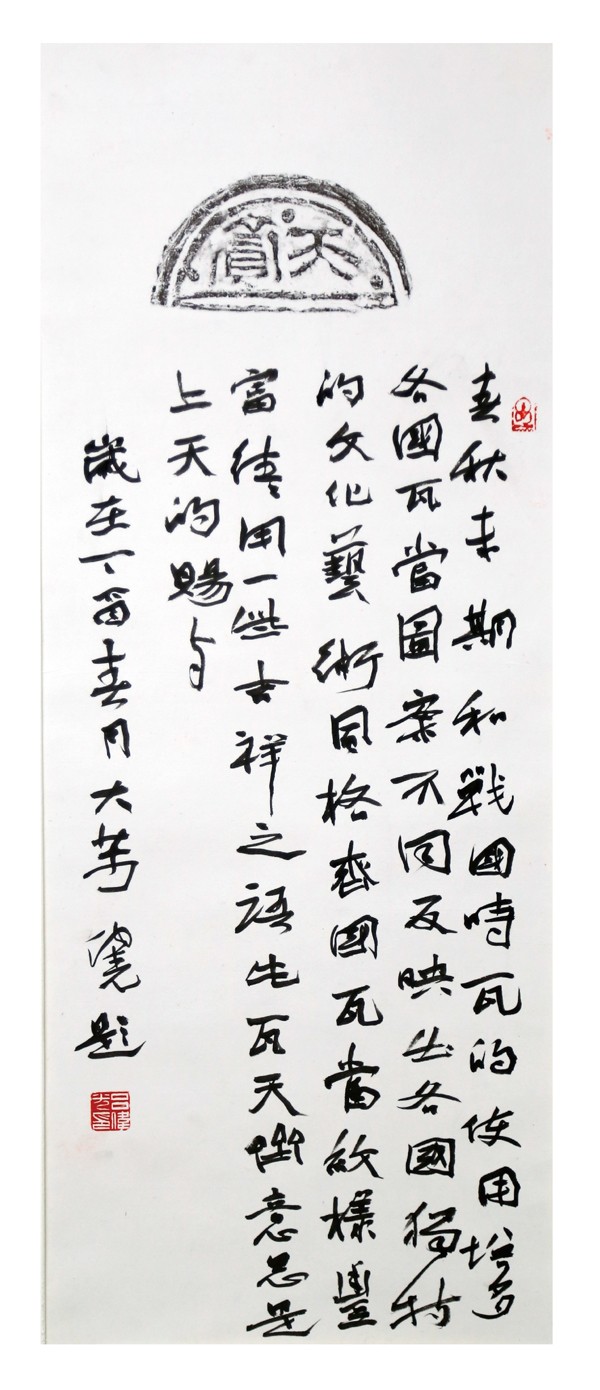 天
春秋末期和戰國時瓦的使用增多
各國瓦當圖案不同反映出各國獨特
的文化藝術風格齊國瓦當紋樣豐
富用一些吉祥之語此瓦天意思是
上天的賜予
歲在丁酉春月大偉光題
吕偉光印